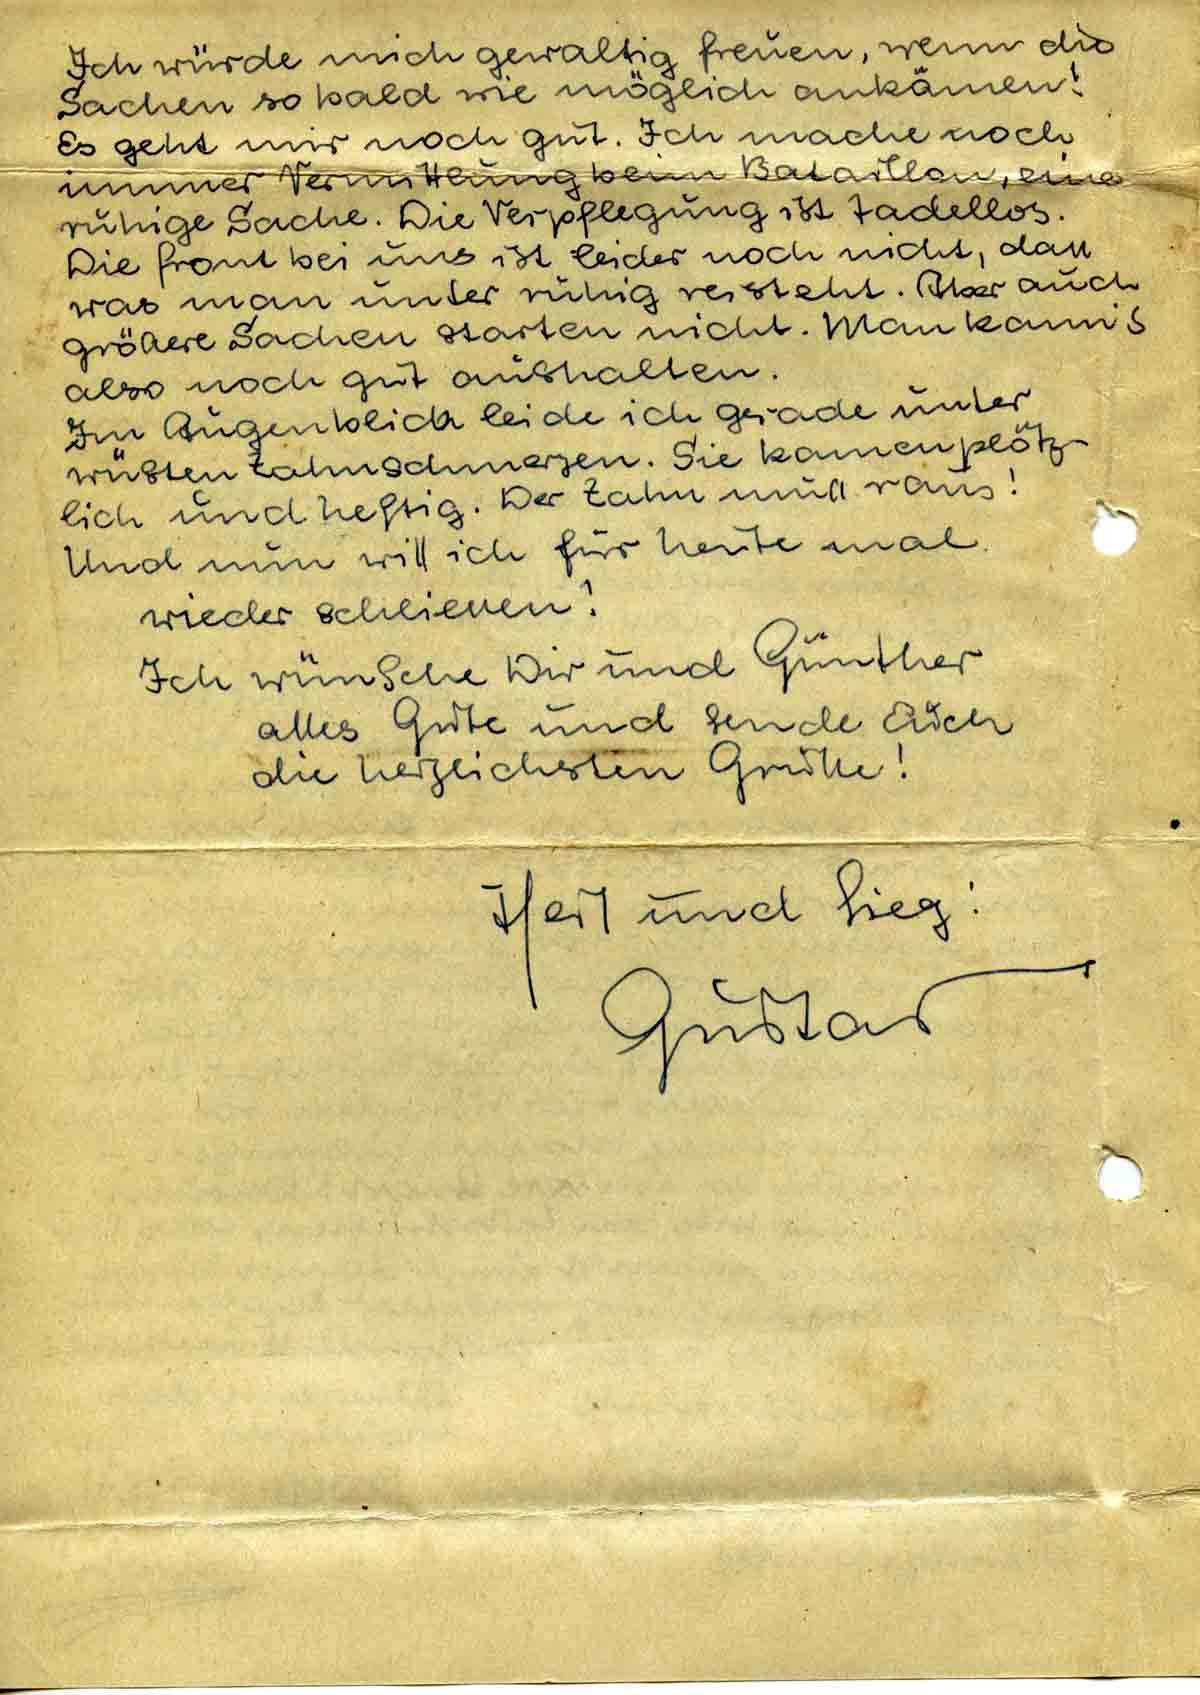 Ich würde mich gewaltig freuen, wenn die
Sachen so bald wie möglich ankämen!
Es geht mir noch gut. Ich mache noch
immer Vermittlung beim Bataillon, eine
ruhige Sache. Die Verpflegung ist tadellos.
Die Front bei uns ist leider noch nicht, daß
was man unter ruhig versteht. Aber auch
größere Sachen starten nicht. Man kann's
also noch gut aushalten.
Im Augenblick leide ich gerade unter
wüsten Zahnschmerzen. Sie kamen plötz-
lich und heftig. Der Zahn muß raus!
Und nun will ich für heute mal
wieder schließen!
Ich wünsche Dir und Günther
alles Gute und sende Euch
die herzlichsten Grüße!
Heil und Sieg!
Gustav